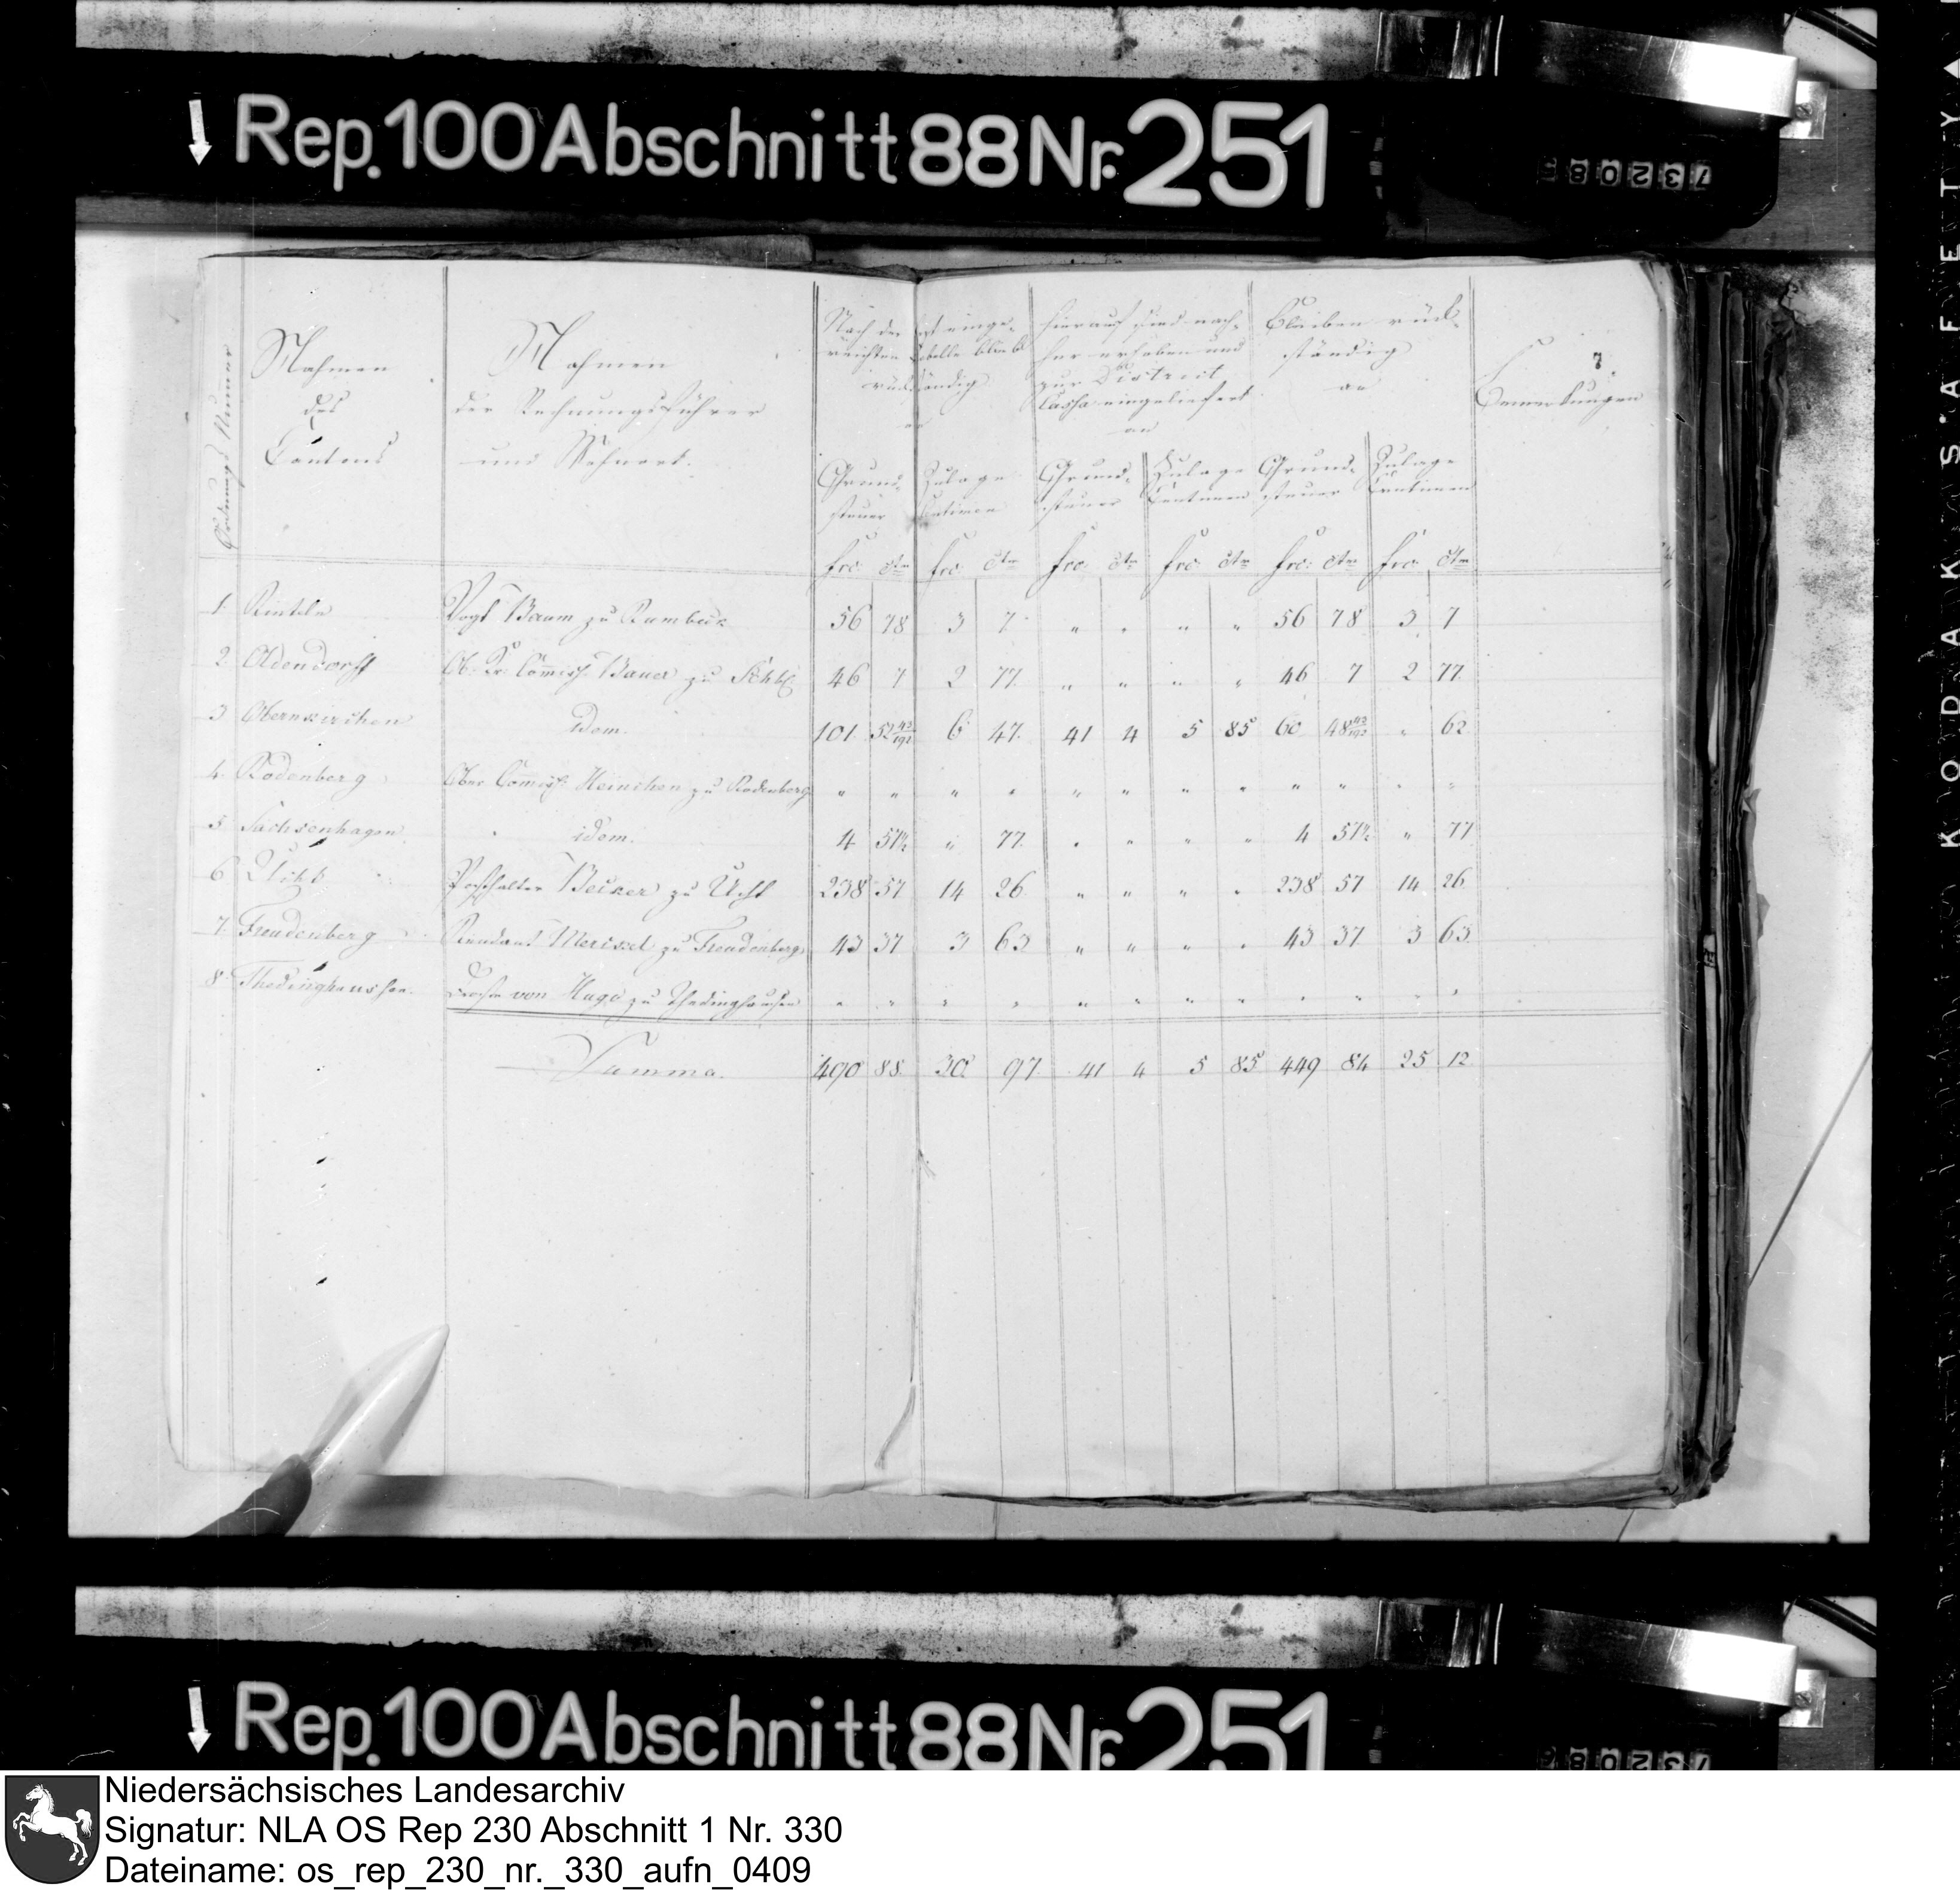 Rep. 100 Abschnitt 88 Nr. 251
732085
Ordnungs Nummer
Nahmen
des
Cantons
Nahmen
der Rechnungsführer
und Wohnort.
Nach der einge-
reichten Tabelle blieb
rückständig
an
hierauf sind nach-
her erhoben und
zur District
Cassa eingeliefert
an
Bleiben rück-
ständig
an
7.
Bemerkungen
Grund- Zulage Grund- Zulage Grund- Zulage
steuer Centimen steuer Centimen steuer Centimen
frc: ctm frc: ctm frc: ctm frc: ctm frc: ctm frc: ctm
1. Rinteln Vogt Baum zu Rumbeck 56 78 3 7 " " " " 56 78 3 7
2 Oldendorff Bauer zu 46 7 2 77. " " " " 46 7 2 77.
3 Obernkirchen Idem. 101. 52 43/192 6 47. 41 4 5 85 60 48 43/192 " 62
4. Rodenberg Ober Commiss: Heinichen zu Rodenberg " " " " " " " " " " " "
5. Sachsenhagen idem. 4 57½ " 77. " " " " 4 57½ " 77
6 Uchte Posthalter Becker zu Ucht 238 57 14 26 " " " " 238 57 14 26
7. Freudenberg Rendant zu Freudenberg 43 37 3 63 " " " " 43 37 3 63
8 Thedinghaussen. Droste von Hugo zu Thedinghausen " " " " " " " " " " " "
Summa. 490 88. 30 97. 41 4 5 85 449 84 25 12
Rep. 100 Abschnitt 88 Nr. 251
732085
KODAK SAFETY
Niedersächsisches Landesarchiv
Signatur: NLA OS Rep 230 Abschnitt 1 Nr. 330
Dateiname: os_rep_230_nr._330_aufn_0409